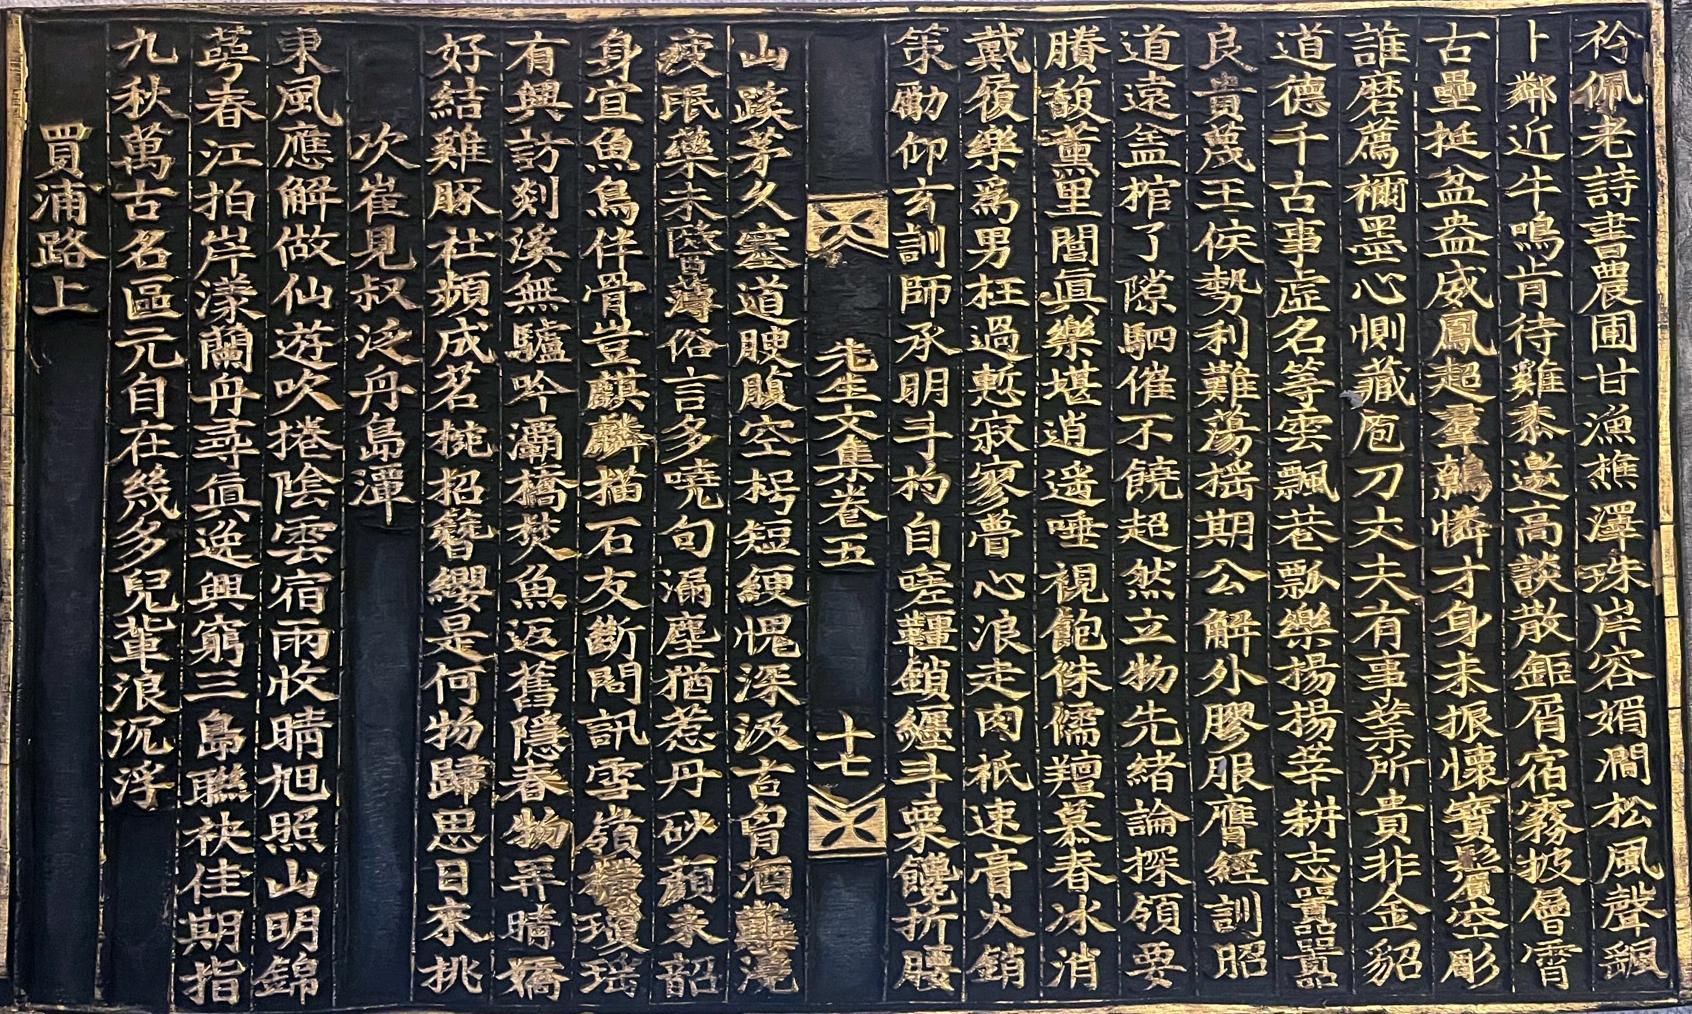 衿佩老詩書農圃甘漁樵澤珠岸容媚澗松風聲飄
卜鄰近牛鳴肯待雞黍邀高談散鉅屑宿霧披層霄
古壘挺盆盎威鳳超羣鷯憐才身未振懷寶鬢空彫
誰磨薦禰墨心惻藏庖刀丈夫有事業所貴非金貂
道德千古事虛名等雲飄巷瓢樂揚揚莘耕志囂囂
良貴蔑王侯勢利難蕩搖期公解外膠服膺經訓昭
道遠盖棺了隙駟催不饒超然立物先緖論探領要
賸馥薰里閭眞樂堪逍遥唾視飽侏儒羶慕春冰消
戴履樂爲男枉過慙寂寥瞢心浪走肉祇速膏火銷
策勵仰玄訓師承明斗杓自嗟韁鎖纒斗粟饞折腰
先生文集卷五 十七
山蹊茅久塞道腴腹空枵短綆愧深汲古胷酒澆
疲氓藥未醫薄俗言多嘵句漏塵猶惹丹砂顏未韶
身宜魚鳥伴骨豈麒麟描石友斷問訊雪嶺瓊瑤
有興訪剡溪無驢吟灞橋焚魚返舊隱春物弄晴嬌
好結雞豚社頻成茗椀招簪纓是何物歸思日來挑
次崔見叔泛舟島潭
東風應解做仙遊吹捲陰雲宿雨收晴旭照山明錦
萼春江拍岸漾蘭舟尋眞逸興窮三島聯袂佳期指
九秋萬古名區元自在幾多兒輩浪沉浮
買浦路上